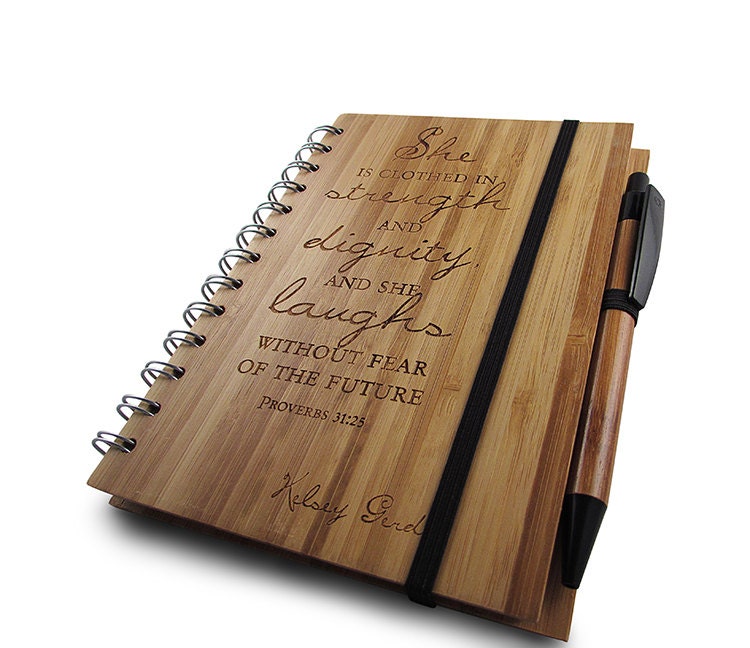 She
IS CLOTHED IN
strength
AND
dignity,
AND SHE
laughs
WITHOUT FEAR
OF THE FUTURE
PROVERBS 31:25
Kelsey Gerd